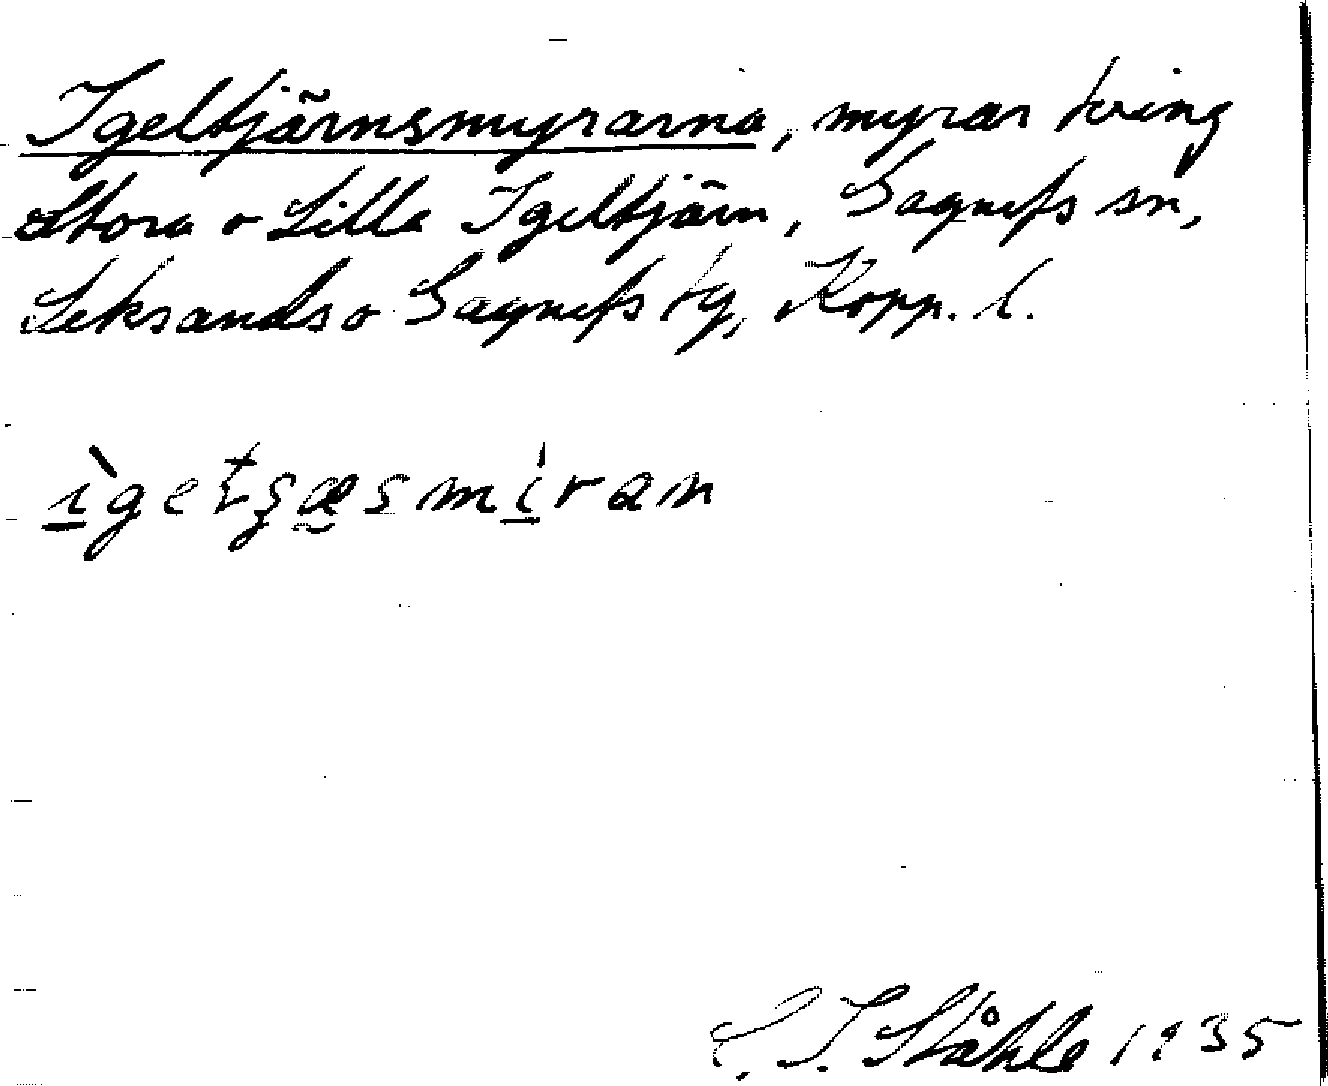 Igeltjärnsmyrarna, myrar kring
Stora o Lilla Igeltjärn, Gagnefs sn,
Leksands o Gagnefs tg, Kopp. l.
ìgetʂæsmíran
C. I. Ståhle 1935